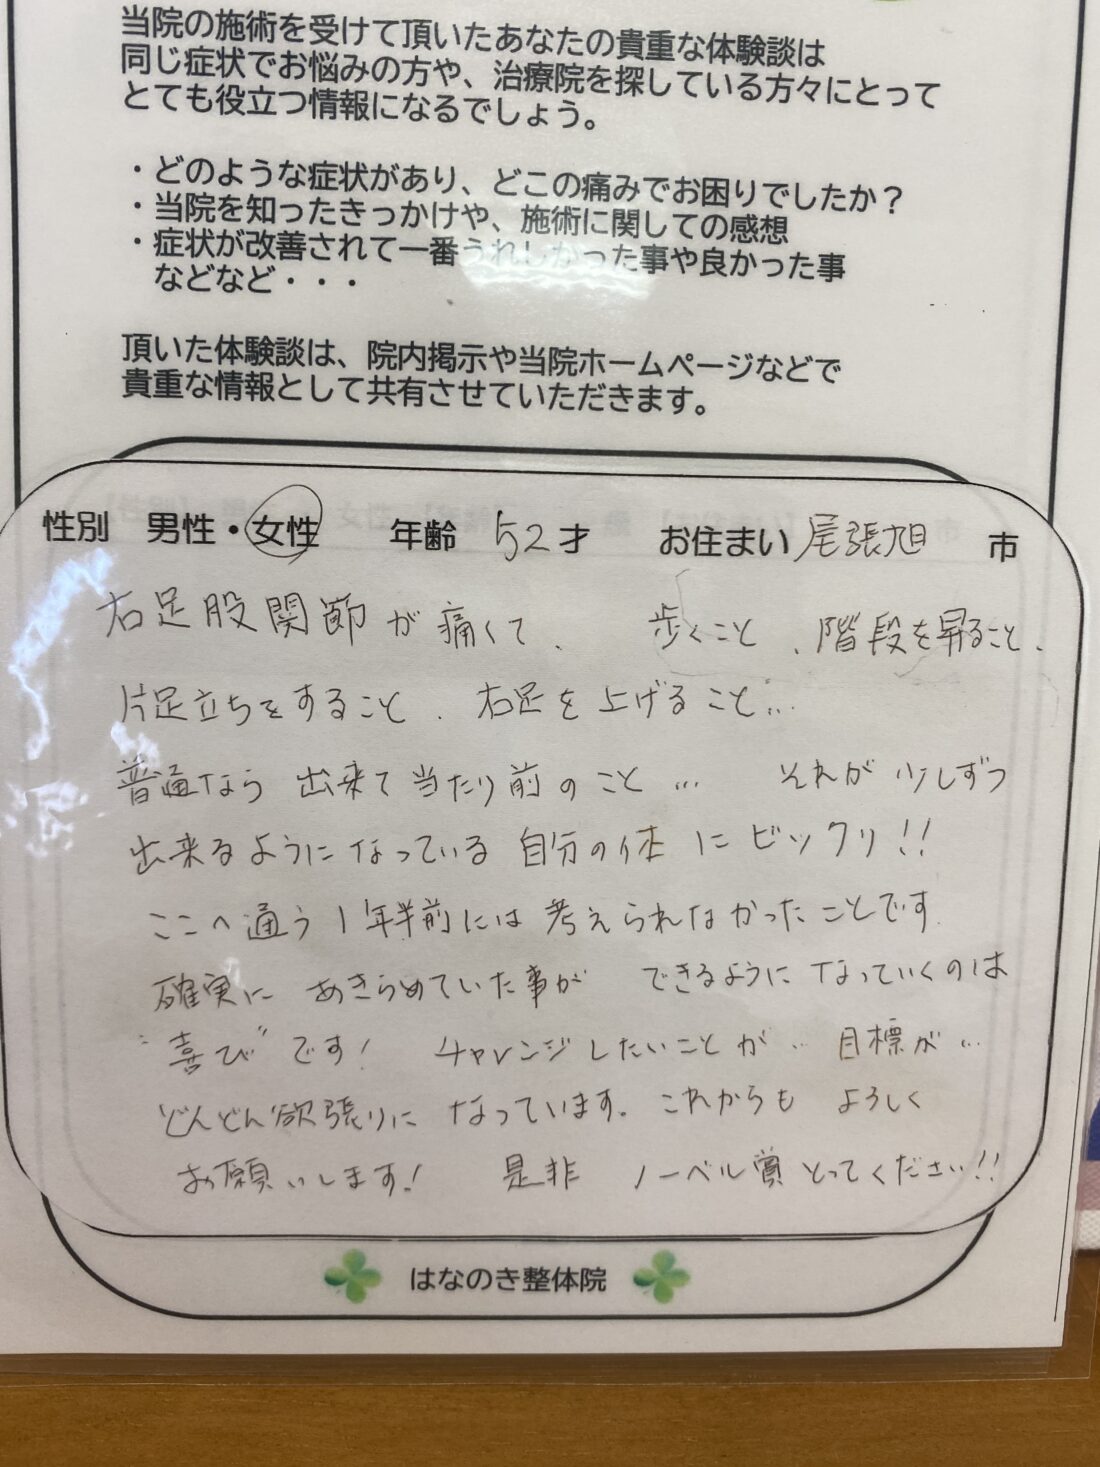 当院の施術を受けて頂いたあなたの貴重な体験談は
同じ症状でお悩みの方や、治療院を探している方々にとって
とても役立つ情報になるでしょう。
・どのような症状があり、どこの痛みでお困りでしたか？
・当院を知ったきっかけや、施術に関しての感想
・症状が改善されて一番うれしかった事や良かった事
などなど・・・
頂いた体験談は、院内掲示や当院ホームページなどで
貴重な情報として共有させていただきます。
性別 男性・女性 年齢 52才 お住まい 尾張旭 市
右足股関節が痛くて、 歩くこと、階段を昇ること、
片足立ちをすること、右足を上げること…
普通なら 出来て当たり前のこと… それが少しずつ
出来るようになっている 自分の体にビックリ!!
ここへ通う1年半前には考えられなかったことです
確実に あきらめていた事が できるようになっていくのは
"喜び"です! チャレンジしたいことが… 目標が…
どんどん欲張りに なっています。これからも よろしく
お願いします! 是非 ノーベル賞とってください!!
はなのき整体院